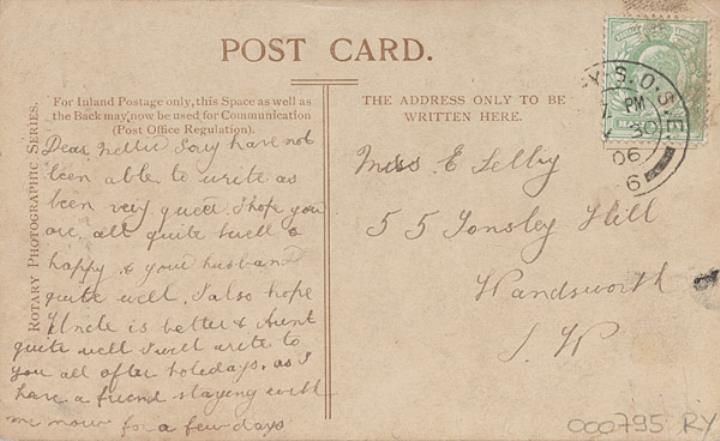 POST CARD.
For Inland Postage only, this Space as well as
the Back may now be used for Communication
(Post Office Regulation).
THE ADDRESS ONLY TO BE
WRITTEN HERE.
ROTARY PHOTOGRAPHIC SERIES.
Dear Nellie Sory have not
been able to write as
been very queer I hope you
are all quite well &
happy & your husband
quite well. I also hope
Uncle is better & Aunt
quite well I will write to
you all after holedays. as I
have a friend staying with
me now for a few days
Miss E Selby
55 Tonsley Hill
Wandsworth
S. W
Y.S.O.S.E.
PM
30
06
6
000795 RY